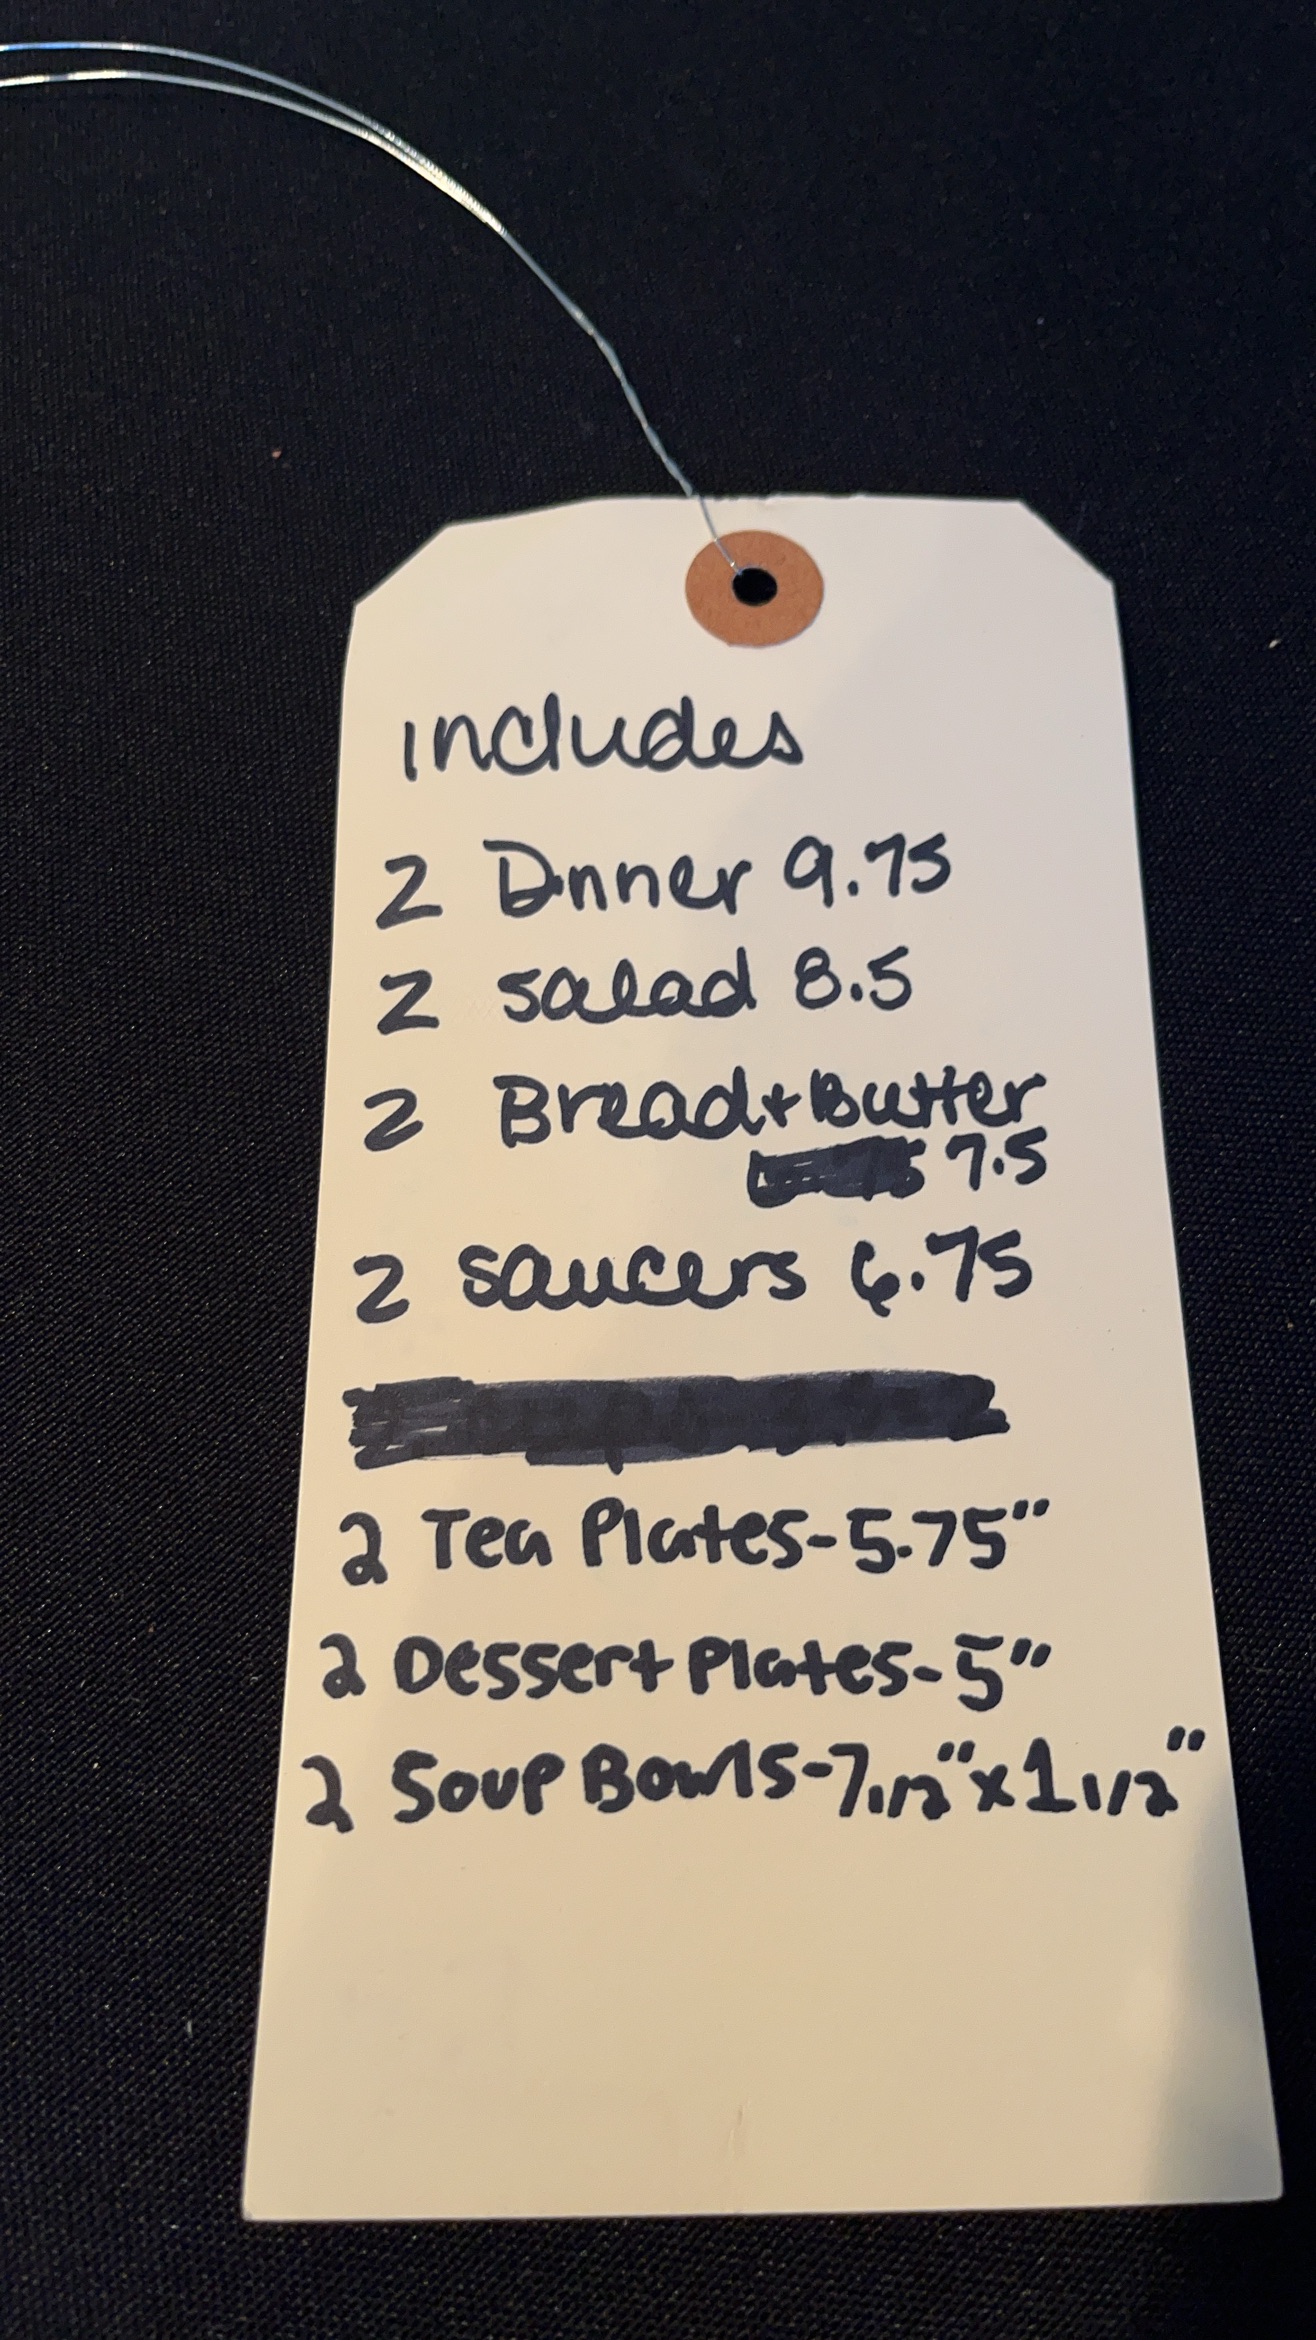 includes
2 Dinner 9.75
2 salad 8.5
2 Bread+Butter
7.5
2 saucers 6.75
2 Tea Plates-5.75"
2 Dessert Plates-5"
2 Soup Bowls-7 1/2" x 1 1/2"